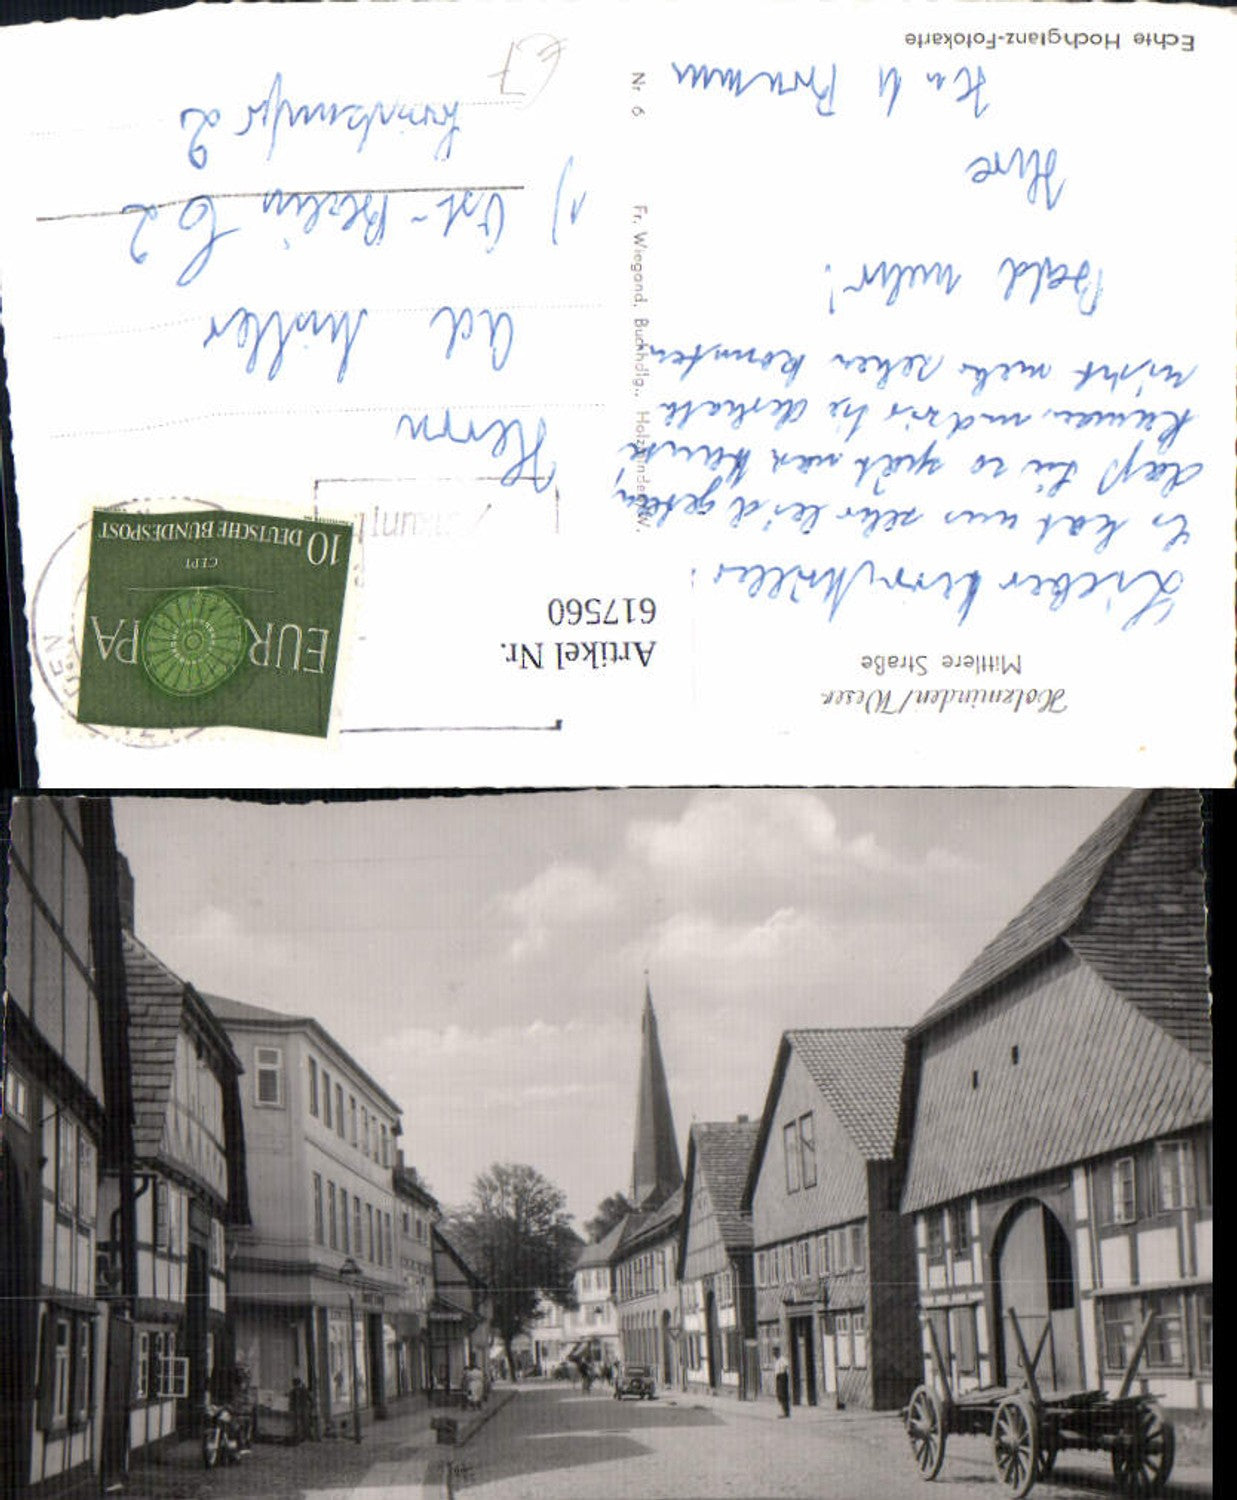 Holzminden/Weser
Mittlere Straße
Lieber Herr Müller!
Es hat uns sehr leid getan,
daß Sie so spät nach Hause
kamen und wir Sie deshalb
nicht mehr sehen konnten
Bald mehr!
Ihre
Echte Hochglanz-Fotokarte
Nr 6 Fr. Wiegand, Buchhdlg., Holzminden/W.
Artikel Nr.
617560
EUROPA
CEPT
10 DEUTSCHE BUNDESPOST
Herrn
Ad Müller
1) Ost-Berlin C 2
2
€7